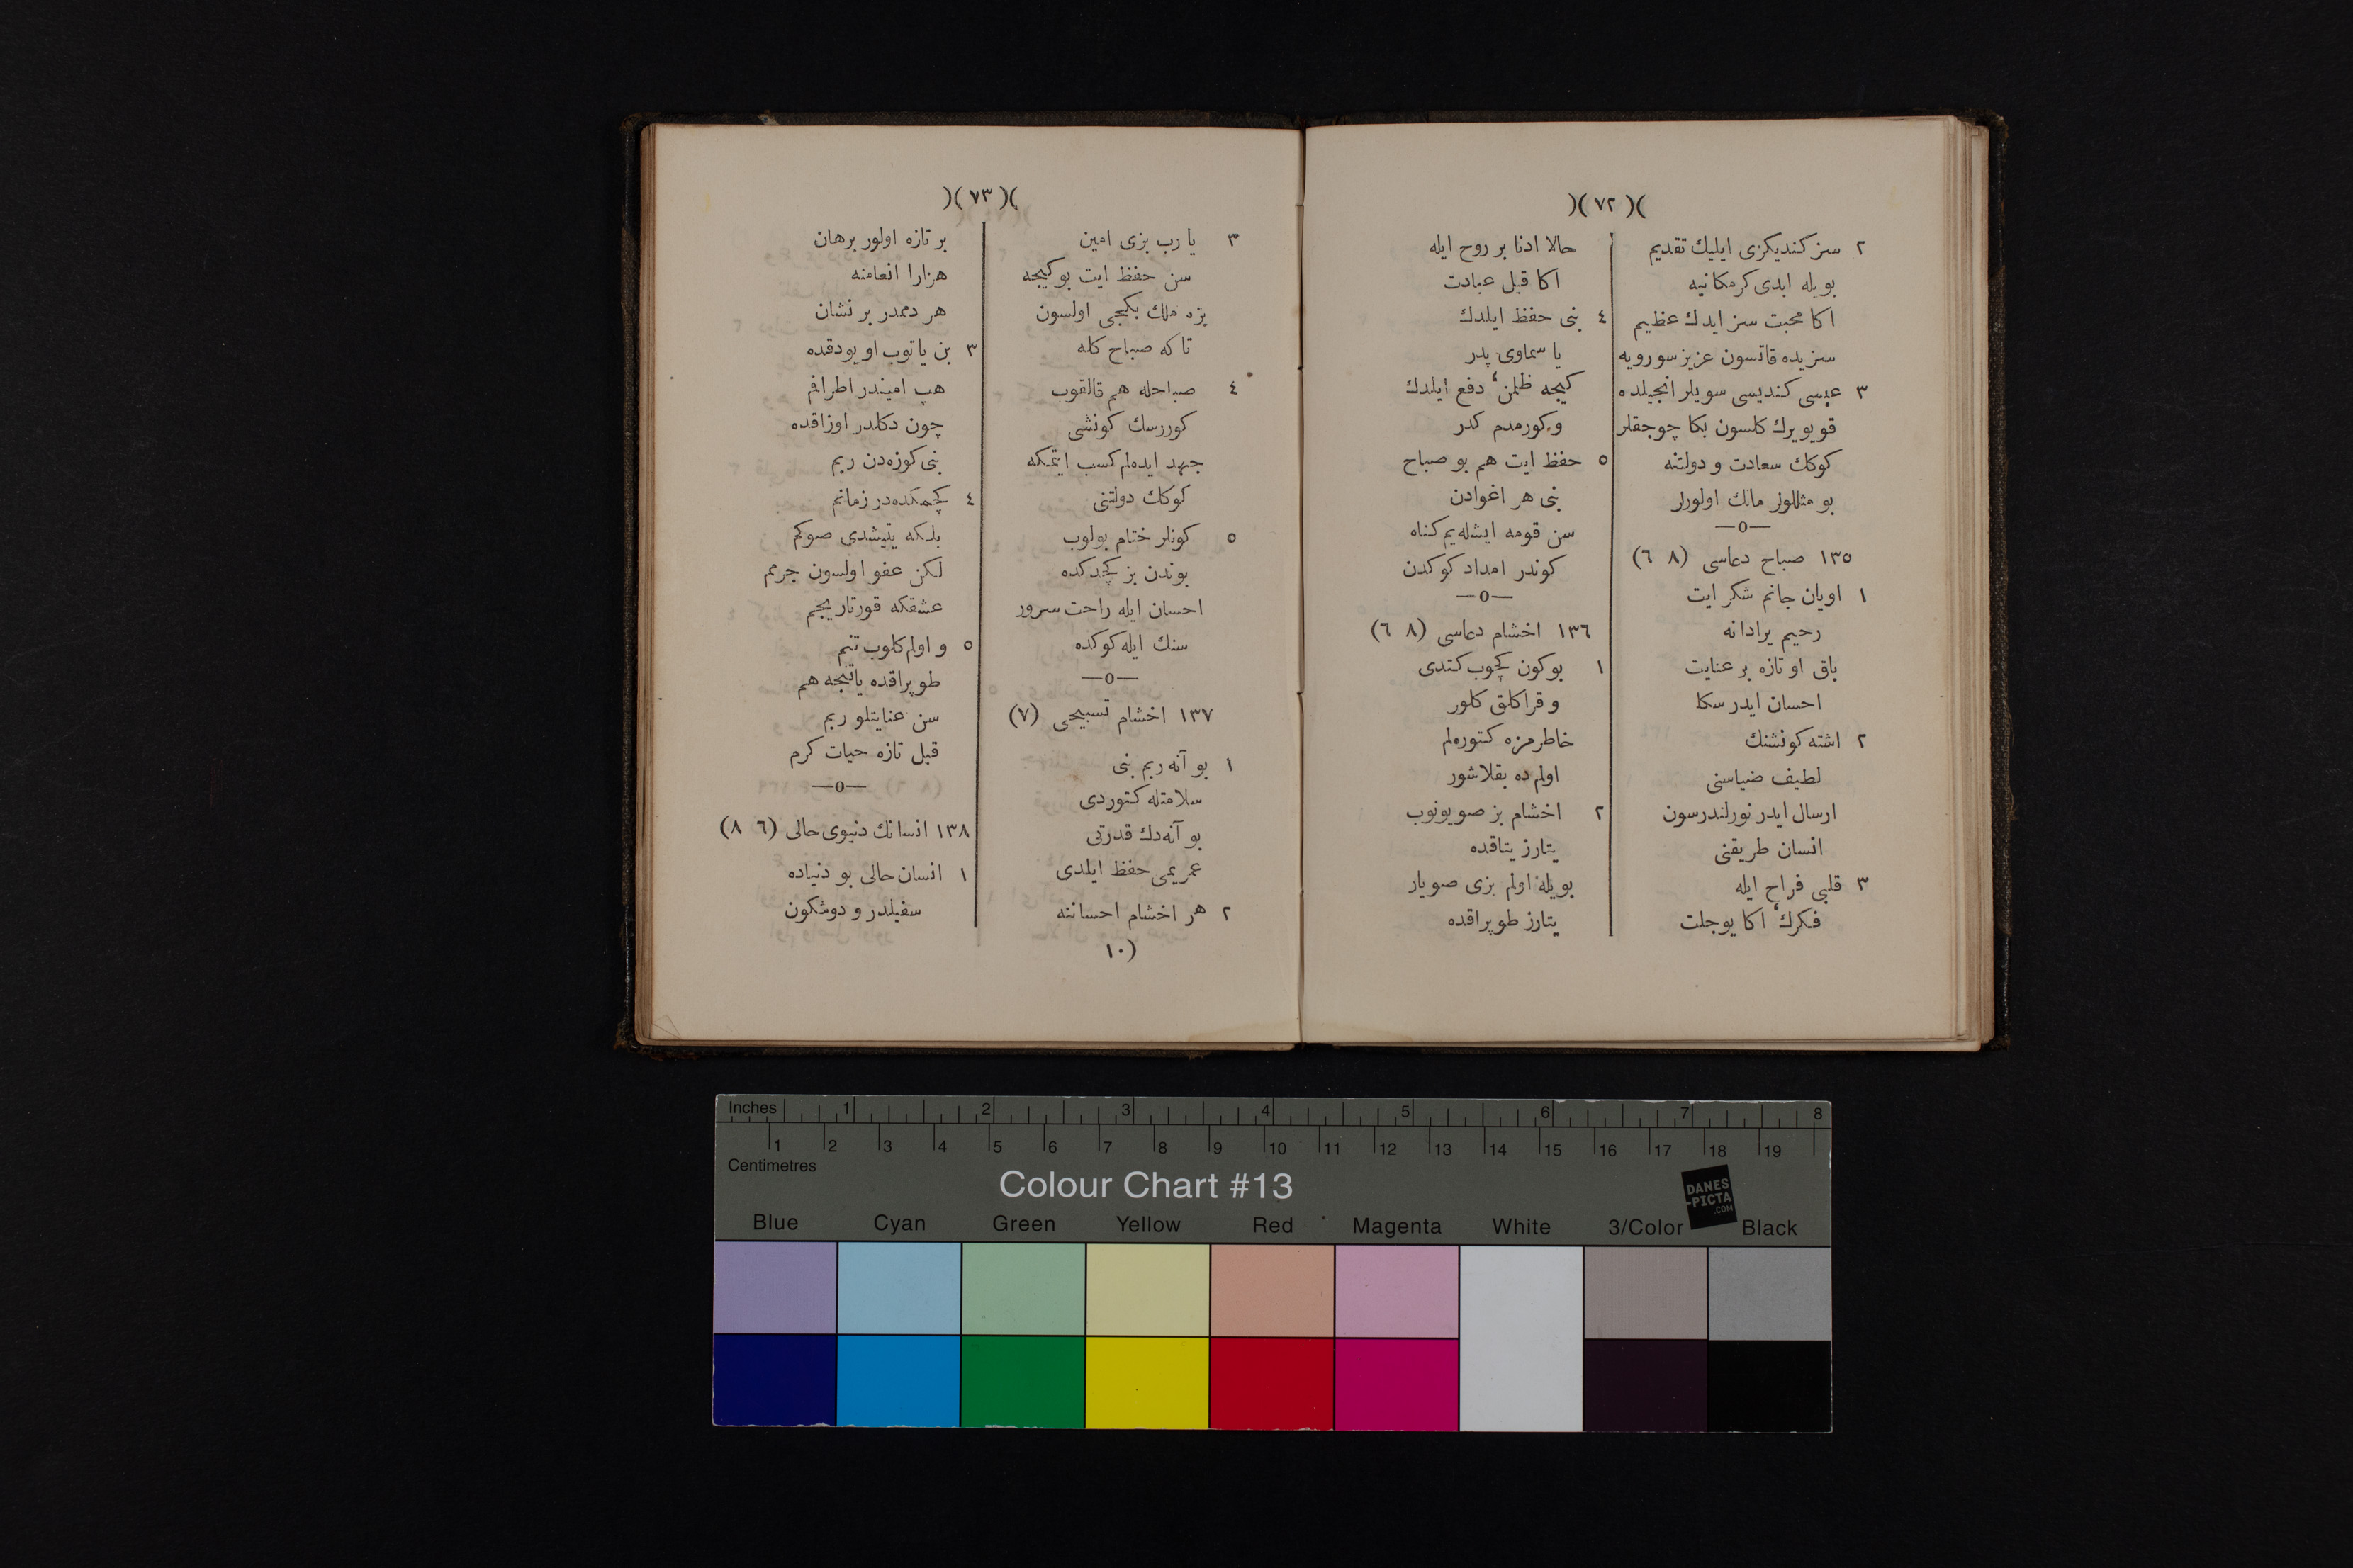 )( ٧٢ )(
٢ سز كنديكزى ايليك تقديم
بويله ابدى كرمكانيه
اكا محبت سز ايدك عظيم
سزيده قاتسون عزيز سورويه
٣ عيسى كنديسى سويلر انجيلده
قويويرك كلسون بكا چوجقلر
كوكك سعادت و دولتنه
بو مثللولر مالك اولورلر
—o—
١٣٥ صباح دعاسى (٨ ٦)
١ اويان جانم شكر ايت
رحيم يرادانه
باق او تازه بر عنايت
احسان ايدر سكا
٢ اشته كونشنك
لطيف ضياسنى
ارسال ايدر نورلندرسون
انسان طريقنى
٣ قلبى فراح ايله
فكرك، اكا يوجلت
حالا ادنا بر روح ايله
اكا قيل عبادت
٤ بنى حفظ ايلدك
يا سماوى پدر
كيجه ظلمن، دفع ايلدك
و كورمدم كدر
٥ حفظ ايت هم بو صباح
بنى هر اغوادن
سن قومه ايشله يم كناه
كوندر امداد كوكدن
—o—
١٣٦ اخشام دعاسى (٨ ٦)
١ بوكون كچوب كتدى
و قراكلق كلور
خاطرمزه كتوره لم
اولم ده يقلاشور
٢ اخشام بز صويونوب
يتارز يتاقده
بويله اولم بزى صويار
يتارز طوپراقده
)( ٧٣ )(
٣ يا رب بزى امين
سن حفظ ايت بوكيجه
بزه ملك بكجى اولسون
تا كه صباح كله
٤ صباحله هم قالقوب
كوررسك كونشى
جهد ايده لم كسب ايتمكه
كوكك دولتنى
٥ كونلر ختام بولوب
بوندن بز كچدكده
احسان ايله راحت سرور
سنك ايله كوكده
—o—
١٣٧ اخشام تسبيحى (٧)
١ بو آنه ربم بنى
سلامتله كتوردى
بو آنه دك قدرتى
عمريمى حفظ ايلدى
٢ هر اخشام احساننه
بر تازه اولور برهان
هزارا انعامنه
هر دمدر بر نشان
٣ بن ياتوب اويودقده
هپ اميندر اطرافم
چون دكلدر اوزاقده
بنى كوزه دن ربم
٤ كچمكده در زمانم
بلكه يتيشدى صوكم
لكن عفو اولسون جرمم
عشقكه قورتاريجم
٥ و اولم كلوب تنم
طوپراقده ياتنجه هم
سن عنايتلو ربم
قيل تازه حيات كرم
—o—
١٣٨ انسانك دنيوى حالى (٦ ٨)
١ انسان حالى بو دنياده
سفيلدر و دوشكون
(١٠
Inches 1 2 3 4 5 6 7 8
1 2 3 4 5 6 7 8 9 10 11 12 13 14 15 16 17 18 19
Centimetres
Colour Chart #13
DANES
-PICTA
.COM
Blue Cyan Green Yellow Red Magenta White 3/Color Black